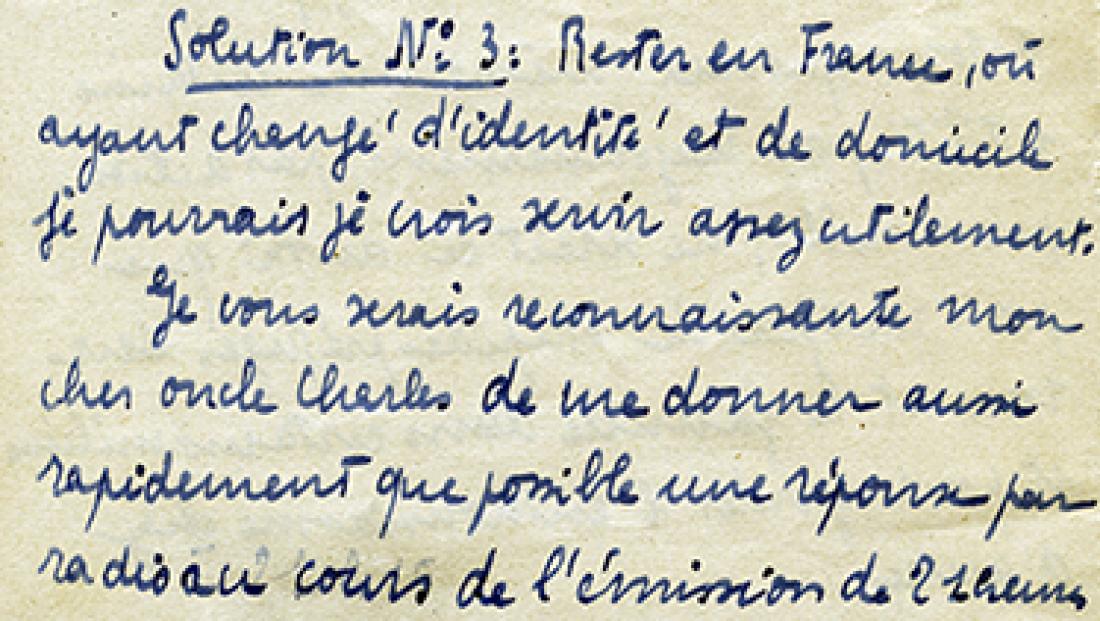 Solution N° 3 : Rester en France, où
ayant changé d'identité et de domicile
je pourrais je crois servir assez utilement.
Je vous serais reconnaissante mon
cher oncle Charles de me donner aussi
rapidement que possible une réponse par
radio au cours de l'émission de 21 heures